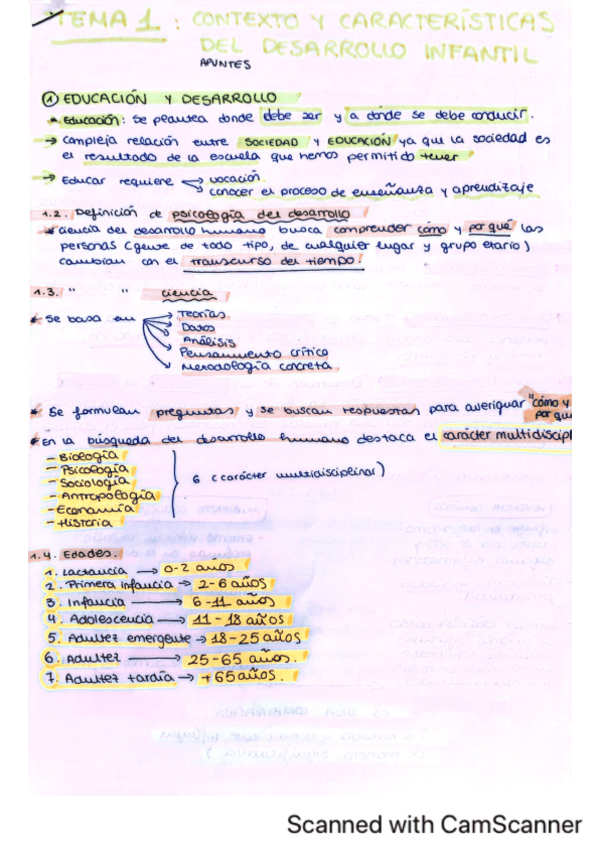 TEMA 1 : CONTEXTO Y CARACTERÍSTICAS
DEL DESARROLLO INFANTIL
APUNTES
① EDUCACIÓN Y DESARROLLO
Educación: se plantea donde debe ser y a donde se debe conducir.
→ compleja relación entre SOCIEDAD y EDUCACIÓN ya que la sociedad es
el resultado de la escuela que hemos permitido tener
→ Educar requiere → vocación
→ conocer el proceso de enseñanza y aprendizaje
1.2. Definición de psicología del desarrollo
* ciencia del desarrollo humano busca comprender cómo y por qué las
personas (gente de todo tipo, de cualquier lugar y grupo etario)
cambian con el transcurso del tiempo.
1.3. " " ciencia
* Se basa en → Teorías.
→ Datos
→ Análisis
→ Pensamiento crítico
→ Metodología concreta.
* Se formulan preguntas y se buscan respuestas para averiguar "cómo y
por qu
* En la búsqueda del desarrollo humano destaca el carácter multidiscipl
- Biología
- Psicología
- Sociología
- Antropología
- Economía
- Historia
6 (carácter multidisciplinar)
1.4. Edades.
1. Lactancia → 0-2 años
2. Primera infancia → 2-6 años
3. Infancia → 6-11 años
4. Adolescencia → 11-18 años
5. Adultez emergente → 18-25 años
6. Adultez → 25-65 años.
7. Adultez tardía → +65 años.
Scanned with CamScanner